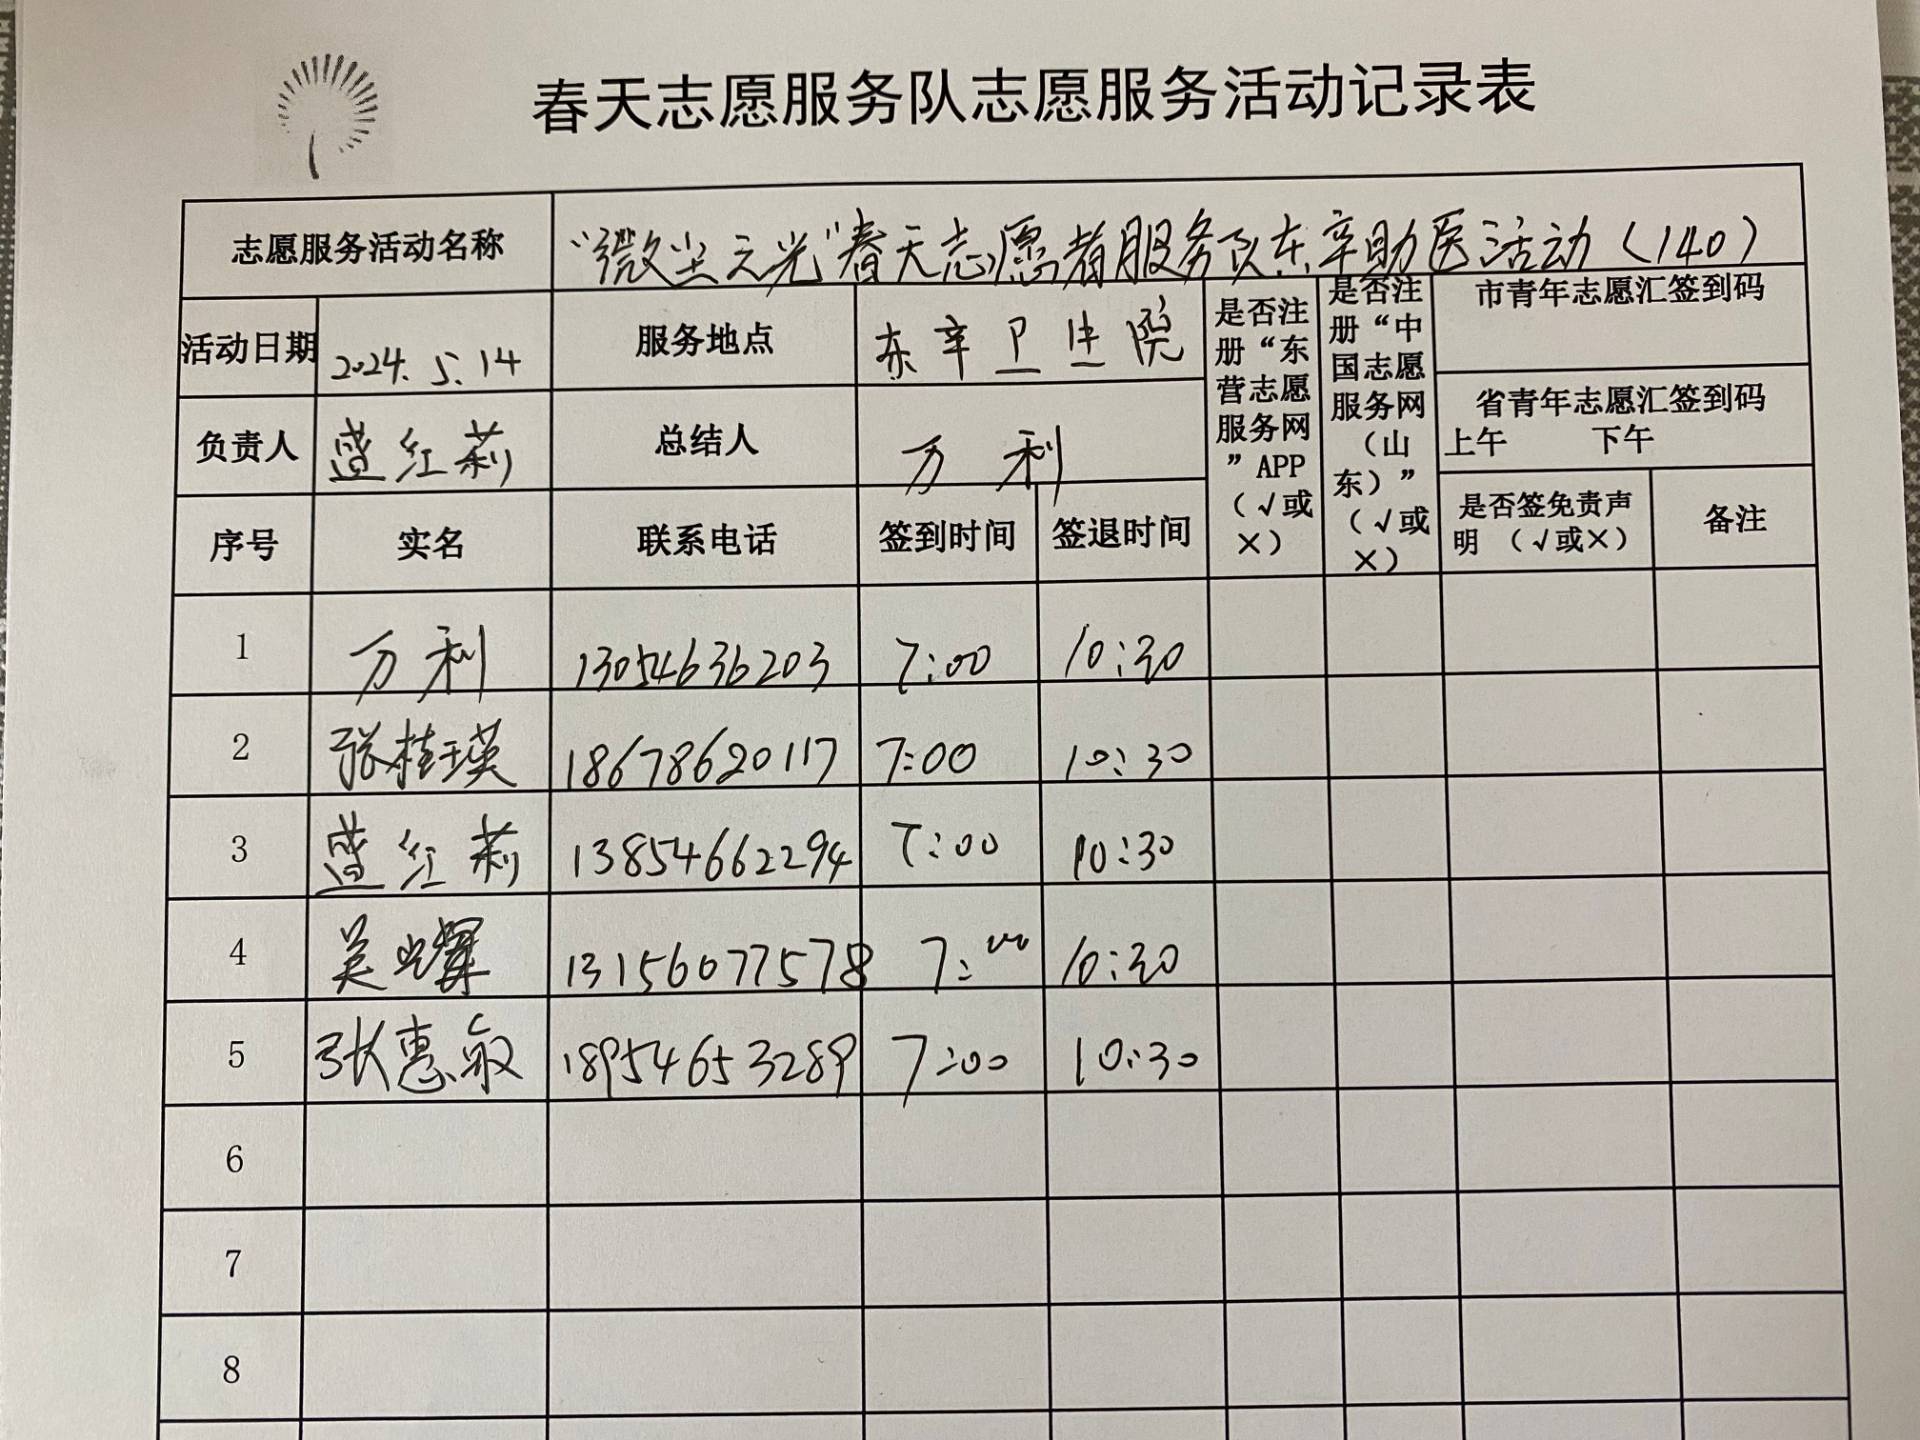 春天志愿服务队志愿服务活动记录表
志愿服务活动名称 “微尘之光”春天志愿者服务队东辛助医活动（140）
活动日期 2024.5.14 服务地点 东辛卫生院
是否注册“东营志愿服务网”APP（√或×）
是否注册“中国志愿服务网（山东）”（√或×）
市青年志愿汇签到码
省青年志愿汇签到码
上午 下午
负责人 蓝红莉 总结人 万利
序号 实名 联系电话 签到时间 签退时间 是否签免责声明（√或×） 备注
1 万利 13054636203 7:00 10:30
2 张桂瑛 18678620117 7:00 10:30
3 蓝红莉 13854662294 7:00 10:30
4 吴 13156077578 7:00 10:30
5 张惠敏 18954653289 7:00 10:30
6
7
8